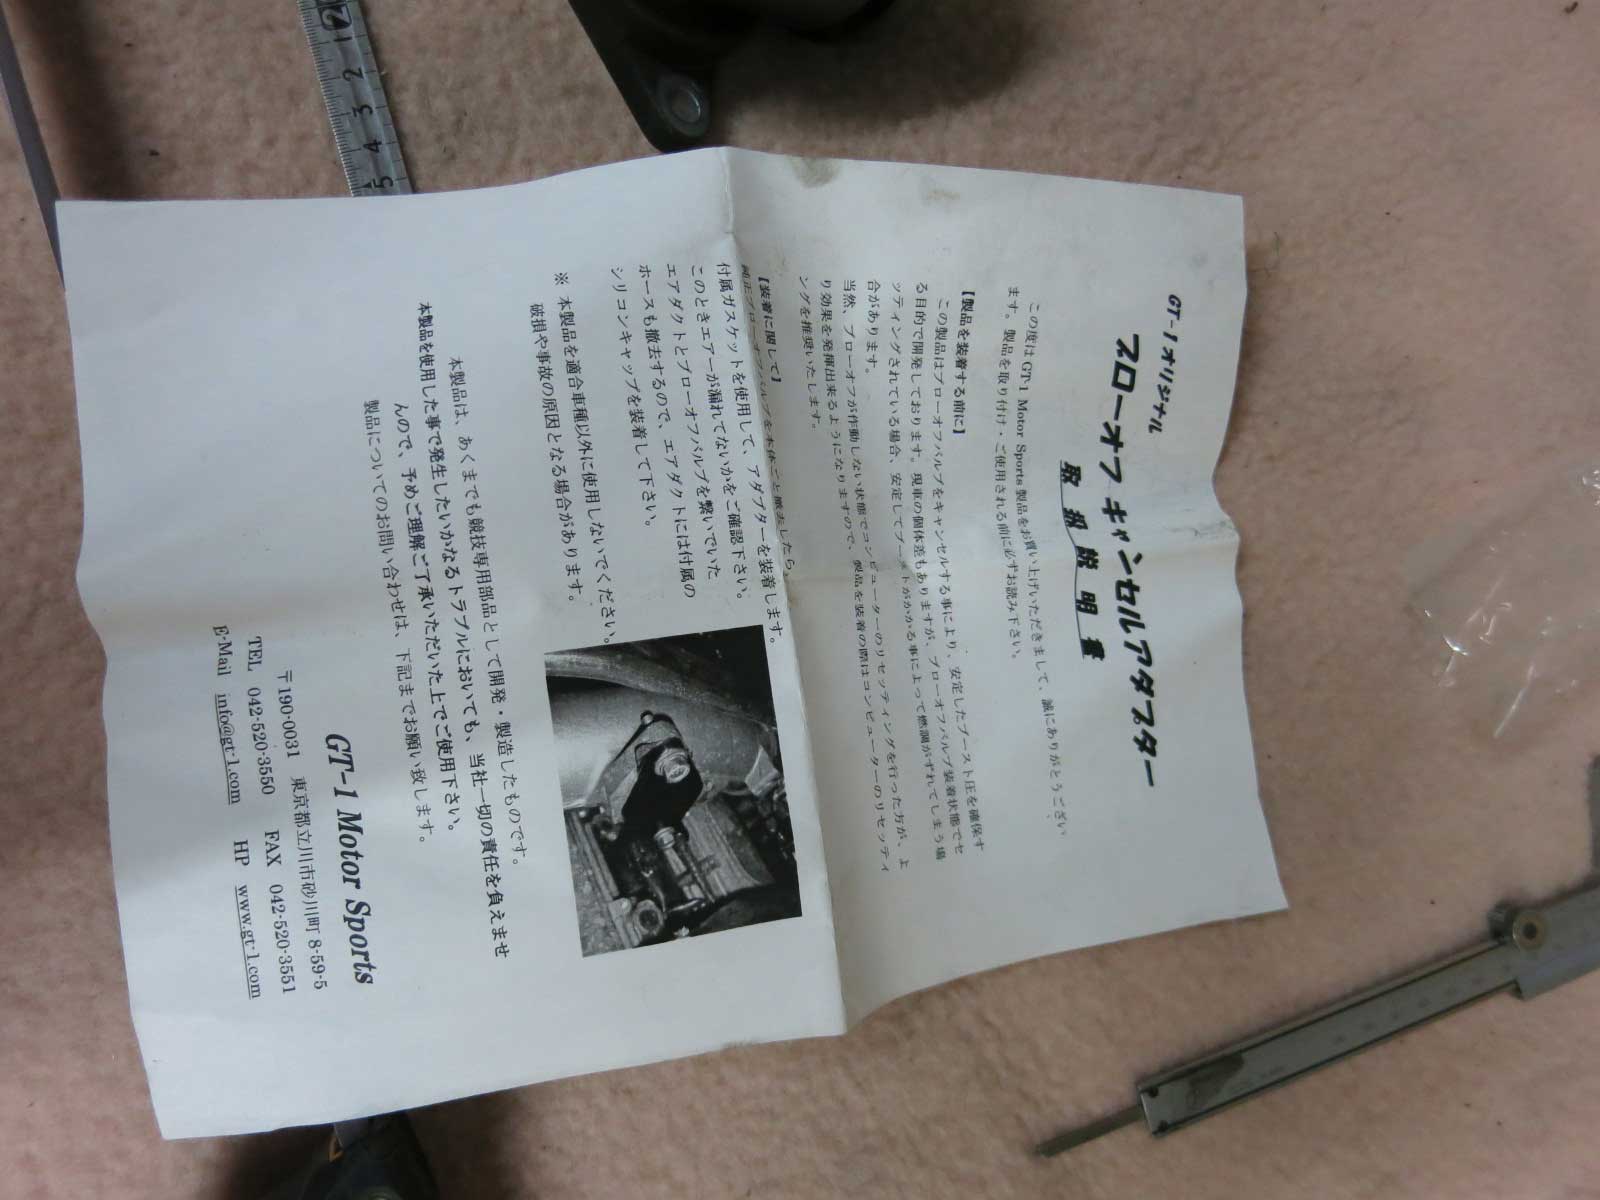 GT-1オリジナル
ブローオフキャンセルアダプター
取扱説明書
この度は GT-1 Motor Sports 製品をお買い上げいただきまして、誠にありがとうござい
ます。製品を取り付け・ご使用される前に必ずお読み下さい。
【製品を装着する前に】
この製品はブローオフバルブをキャンセルする事により、安定したブースト圧を確保す
る目的で開発しております。現車の個体差もありますが、ブローオフバルブ装着状態でセ
ッティングされている場合、安定してブーストがかかる事によって燃調がずれてしまう場
合があります。
当然、ブローオフが作動しない状態でコンピューターのリセッティングを行った方が、よ
り効果を発揮出来るようになりますので、製品を装着の際はコンピューターのリセッティ
ングを推奨いたします。
【装着に関して】
純正ブローオフバルブを本体ごと撤去したら、
付属ガスケットを使用して、アダプターを装着します。
このときエアーが漏れてないかをご確認下さい。
エアダクトとブローオフバルブを繋いでいた
ホースも撤去するので、エアダクトには付属の
シリコンキャップを装着して下さい。
※ 本製品を適合車種以外に使用しないでください。
破損や事故の原因となる場合があります。
本製品は、あくまでも競技専用部品として開発・製造したものです。
本製品を使用した事で発生したいかなるトラブルにおいても、当社一切の責任を負えませ
んので、予めご理解ご了承いただいた上でご使用下さい。
製品についてのお問い合わせは、下記までお願い致します。
GT-1 Motor Sports
〒190-0031 東京都立川市砂川町 8-59-5
TEL 042-520-3550 FAX 042-520-3551
E-Mail info@gt-1.com HP www.gt-1.com
1 2 3 4 5